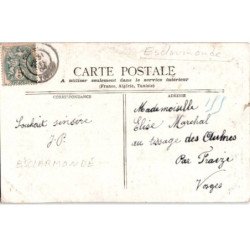 Esclarmonde
CARTE POSTALE
A utiliser seulement dans le service intérieur
(France, Algérie, Tunisie)
CORRESPONDANCE
ADRESSE
Mademoiselle
Elise Marchal
au tissage des
Par Fraize
Vosges
Souhait sincère
J.P.
ESCLARMONDE